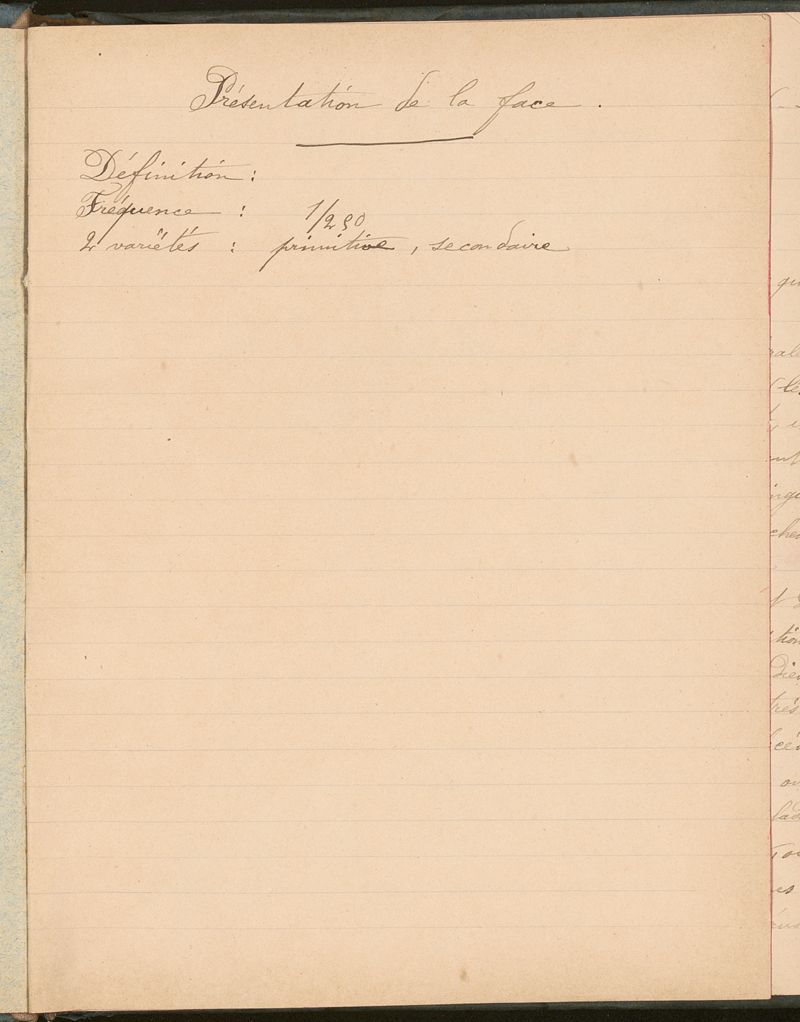 Présentation de la face .
Définition :
Fréquence : 1/250
2 variétés : primitive, secondaire